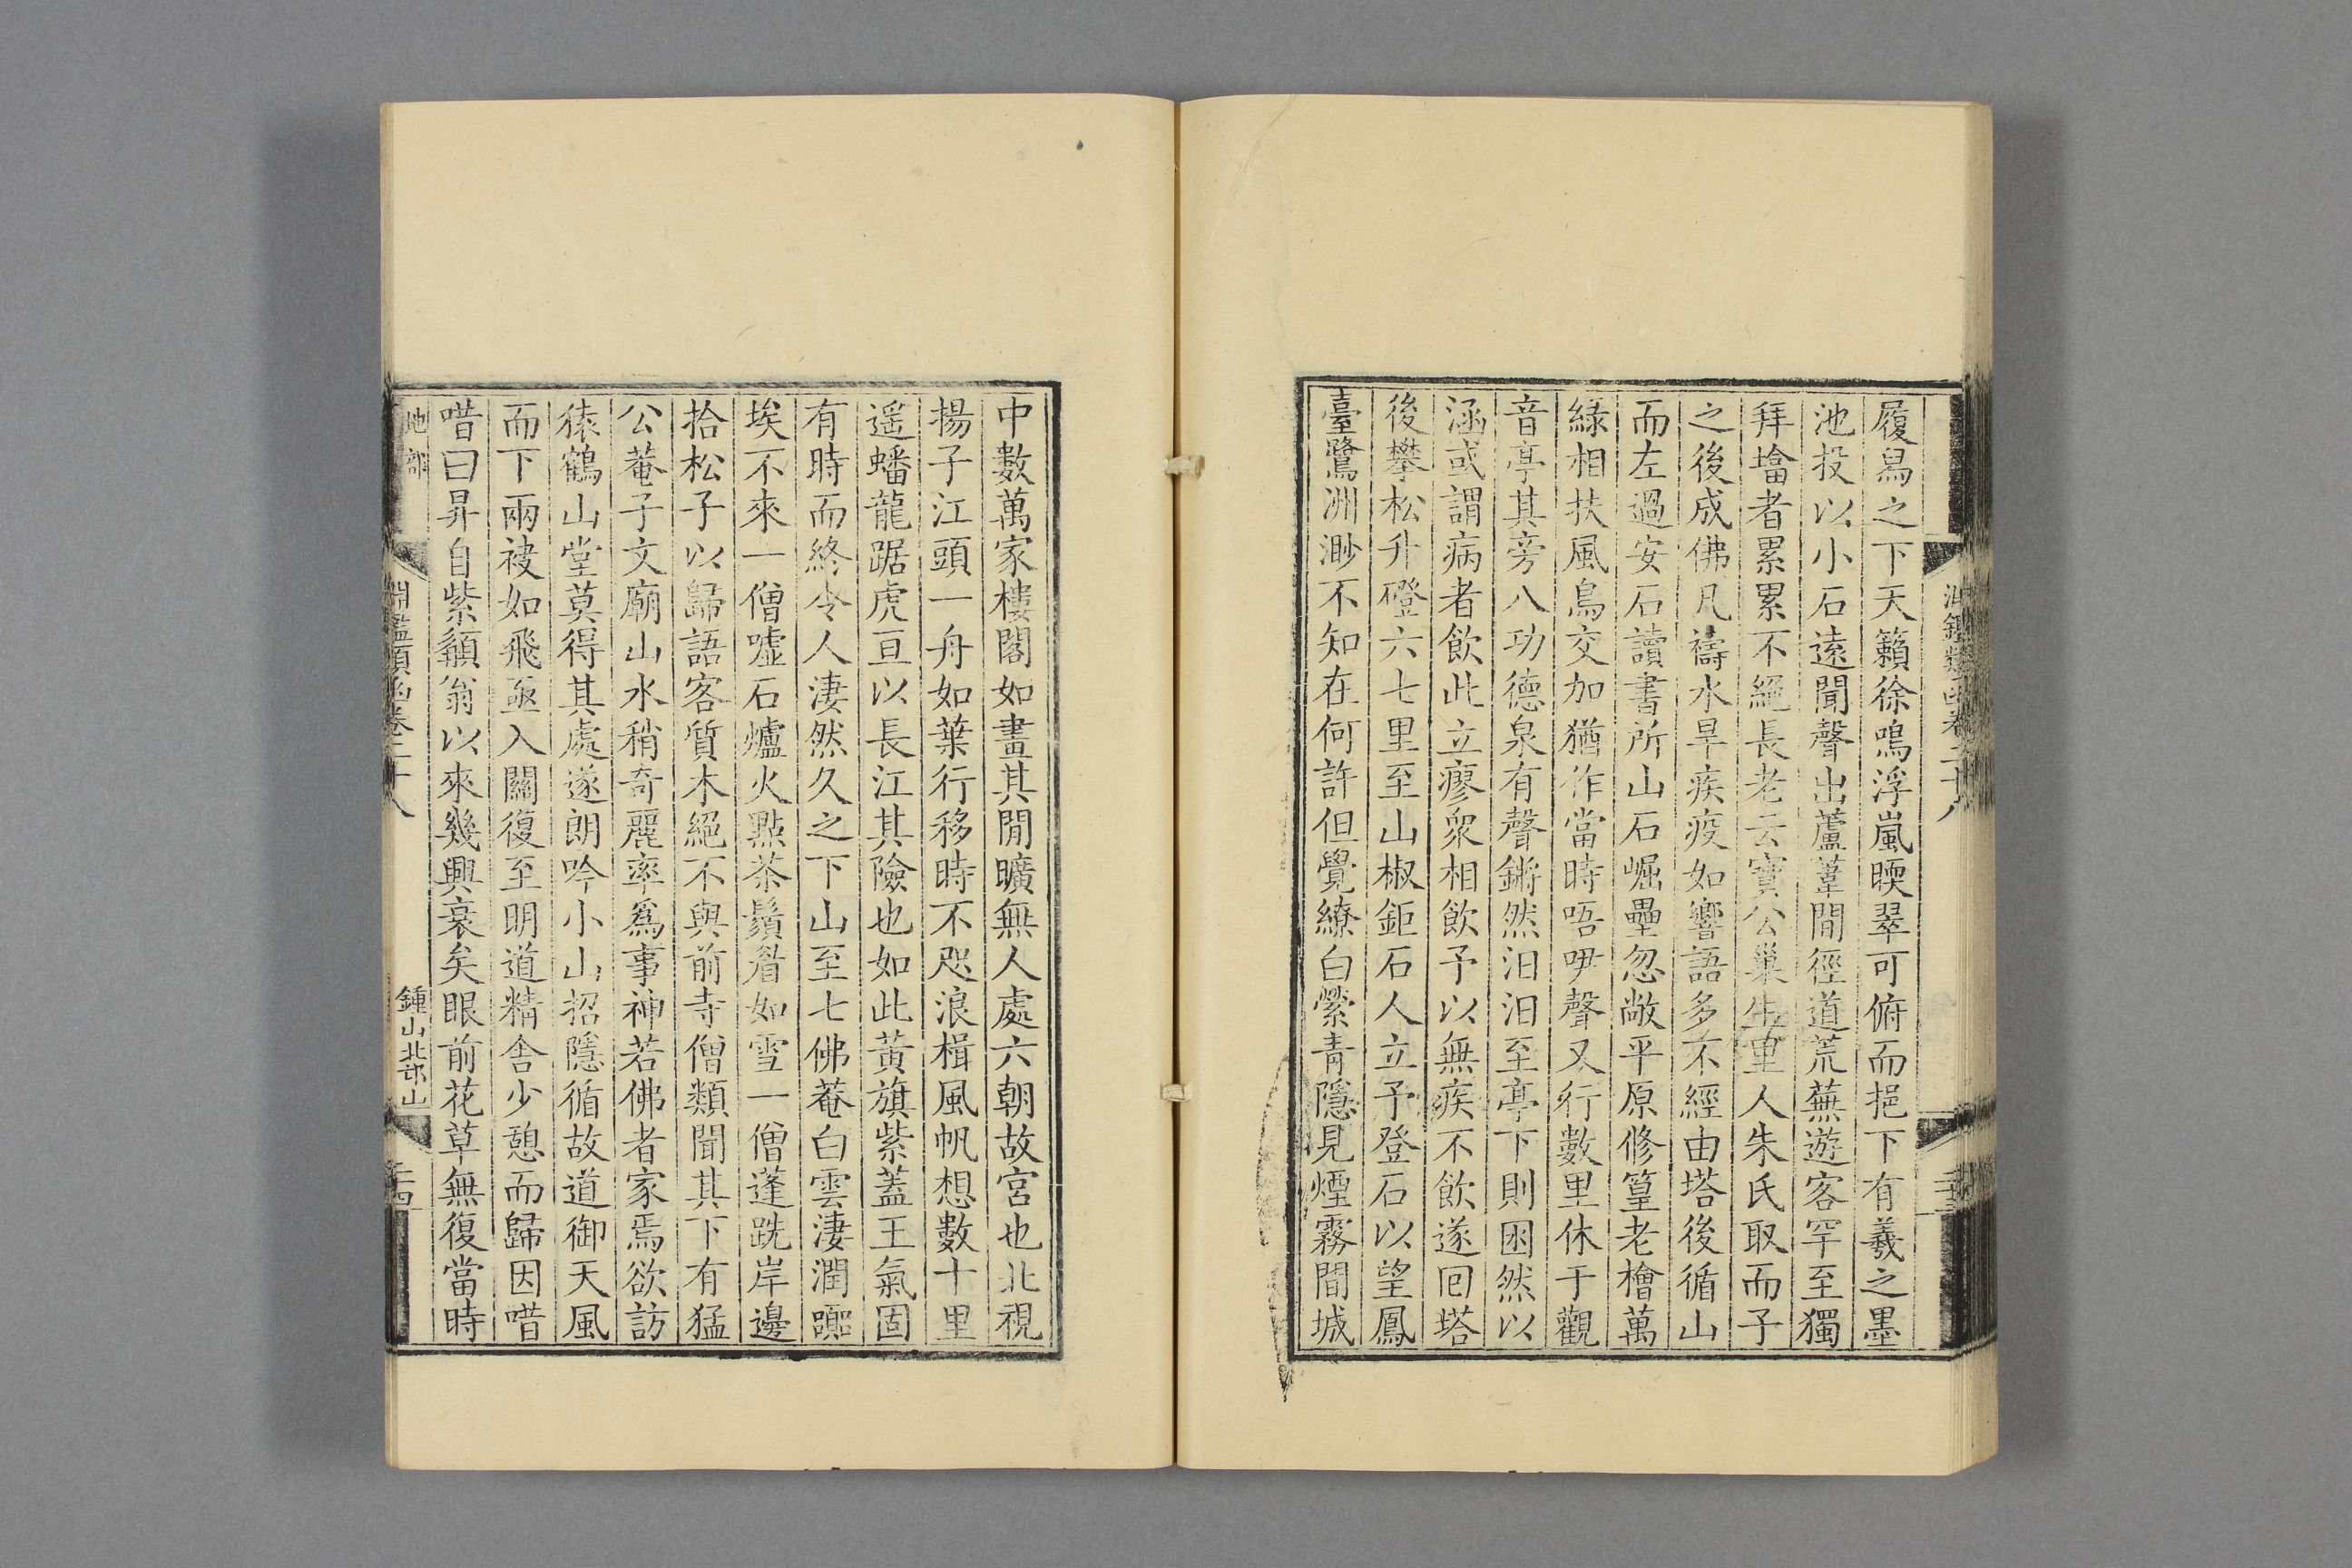 淵鑑類函卷二十八
履舄之下天籟徐鳴浮嵐暎翠可俯而挹下有羲之墨
池投以小石遠聞聲出蘆葦間徑道荒蕪遊客罕至獨
拜墖者累累不絕長老云寶公巢生里人朱氏取而子
之後成佛凡禱水旱疾疫如響語多不經由塔後循山
而左過安石讀書所山石崛壘忽敞平原修篁老檜萬
綠相扶風鳥交加猶作當時唔咿聲又行數里休于觀
音亭其旁八功德泉有聲鏘然汨汨至亭下則困然以
涵或謂病者飲此立瘳衆相飲予以無疾不飲遂囘塔
後攀松升磴六七里至山椒鉅石人立予登石以望鳳
臺鷺洲渺不知在何許但覺繚白縈青隱見煙霧間城
中數萬家樓閣如畫其閒曠無人處六朝故宮也北視
揚子江頭一舟如葉行移時不咫浪楫風帆想數十里
遥蟠龍踞虎亘以長江其險也如此黃旗紫蓋王氣固
有時而終令人淒然久之下山至七佛菴白雲淒潤躡
埃不來一僧噓石爐火點茶鬚眉如雪一僧蓬跣岸邊
拾松子以歸語客質木絕不與前寺僧類聞其下有猛
公菴子文廟山水稍奇麗率爲事神若佛者家焉欲訪
猿鶴山堂莫得其處遂朗吟小山招隱循故道御天風
而下兩袯如飛亟入關復至明道精舍少憩而歸因喈
喈曰昇自紫鬚翁以來幾興衰矣眼前花草無復當時
地部
淵鑑類函卷二十八
鍾山北邙山
二十四